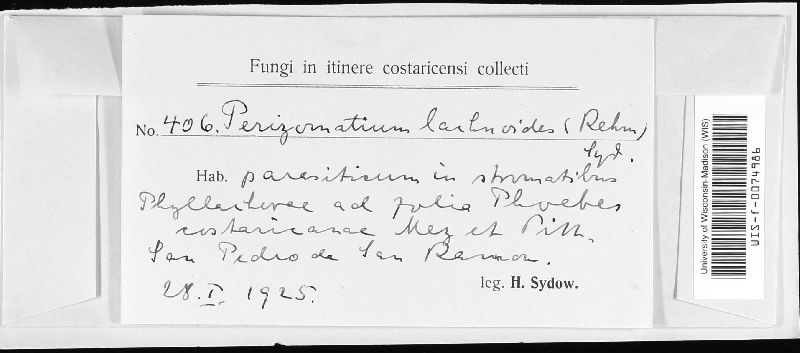 Fungi in itinere costaricensi collecti
No. 406. Perizomatium lachnoides (Rehm)
Syd.
Hab. parasiticum in stromatibus
Phyllachorae ad folia Phoebes
costaricanae Mez et Pitt.
San Pedro de San Ramon.
28. I. 1925.
leg. H. Sydow.
University of Wisconsin-Madison (WIS)
WIS-f-0074986